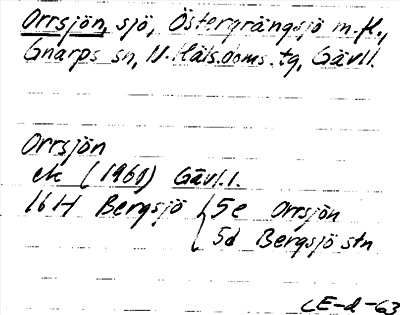 Orrsjön, sjö, Östergrängsjö m.fl.,
Gnarps sn, N. Häls. doms. tg, Gävl.l.
Orrsjön
ek (1960) Gävl.l.
16H Bergsjö { 5e Orrsjön
5d Bergsjö stn
CE-d-63